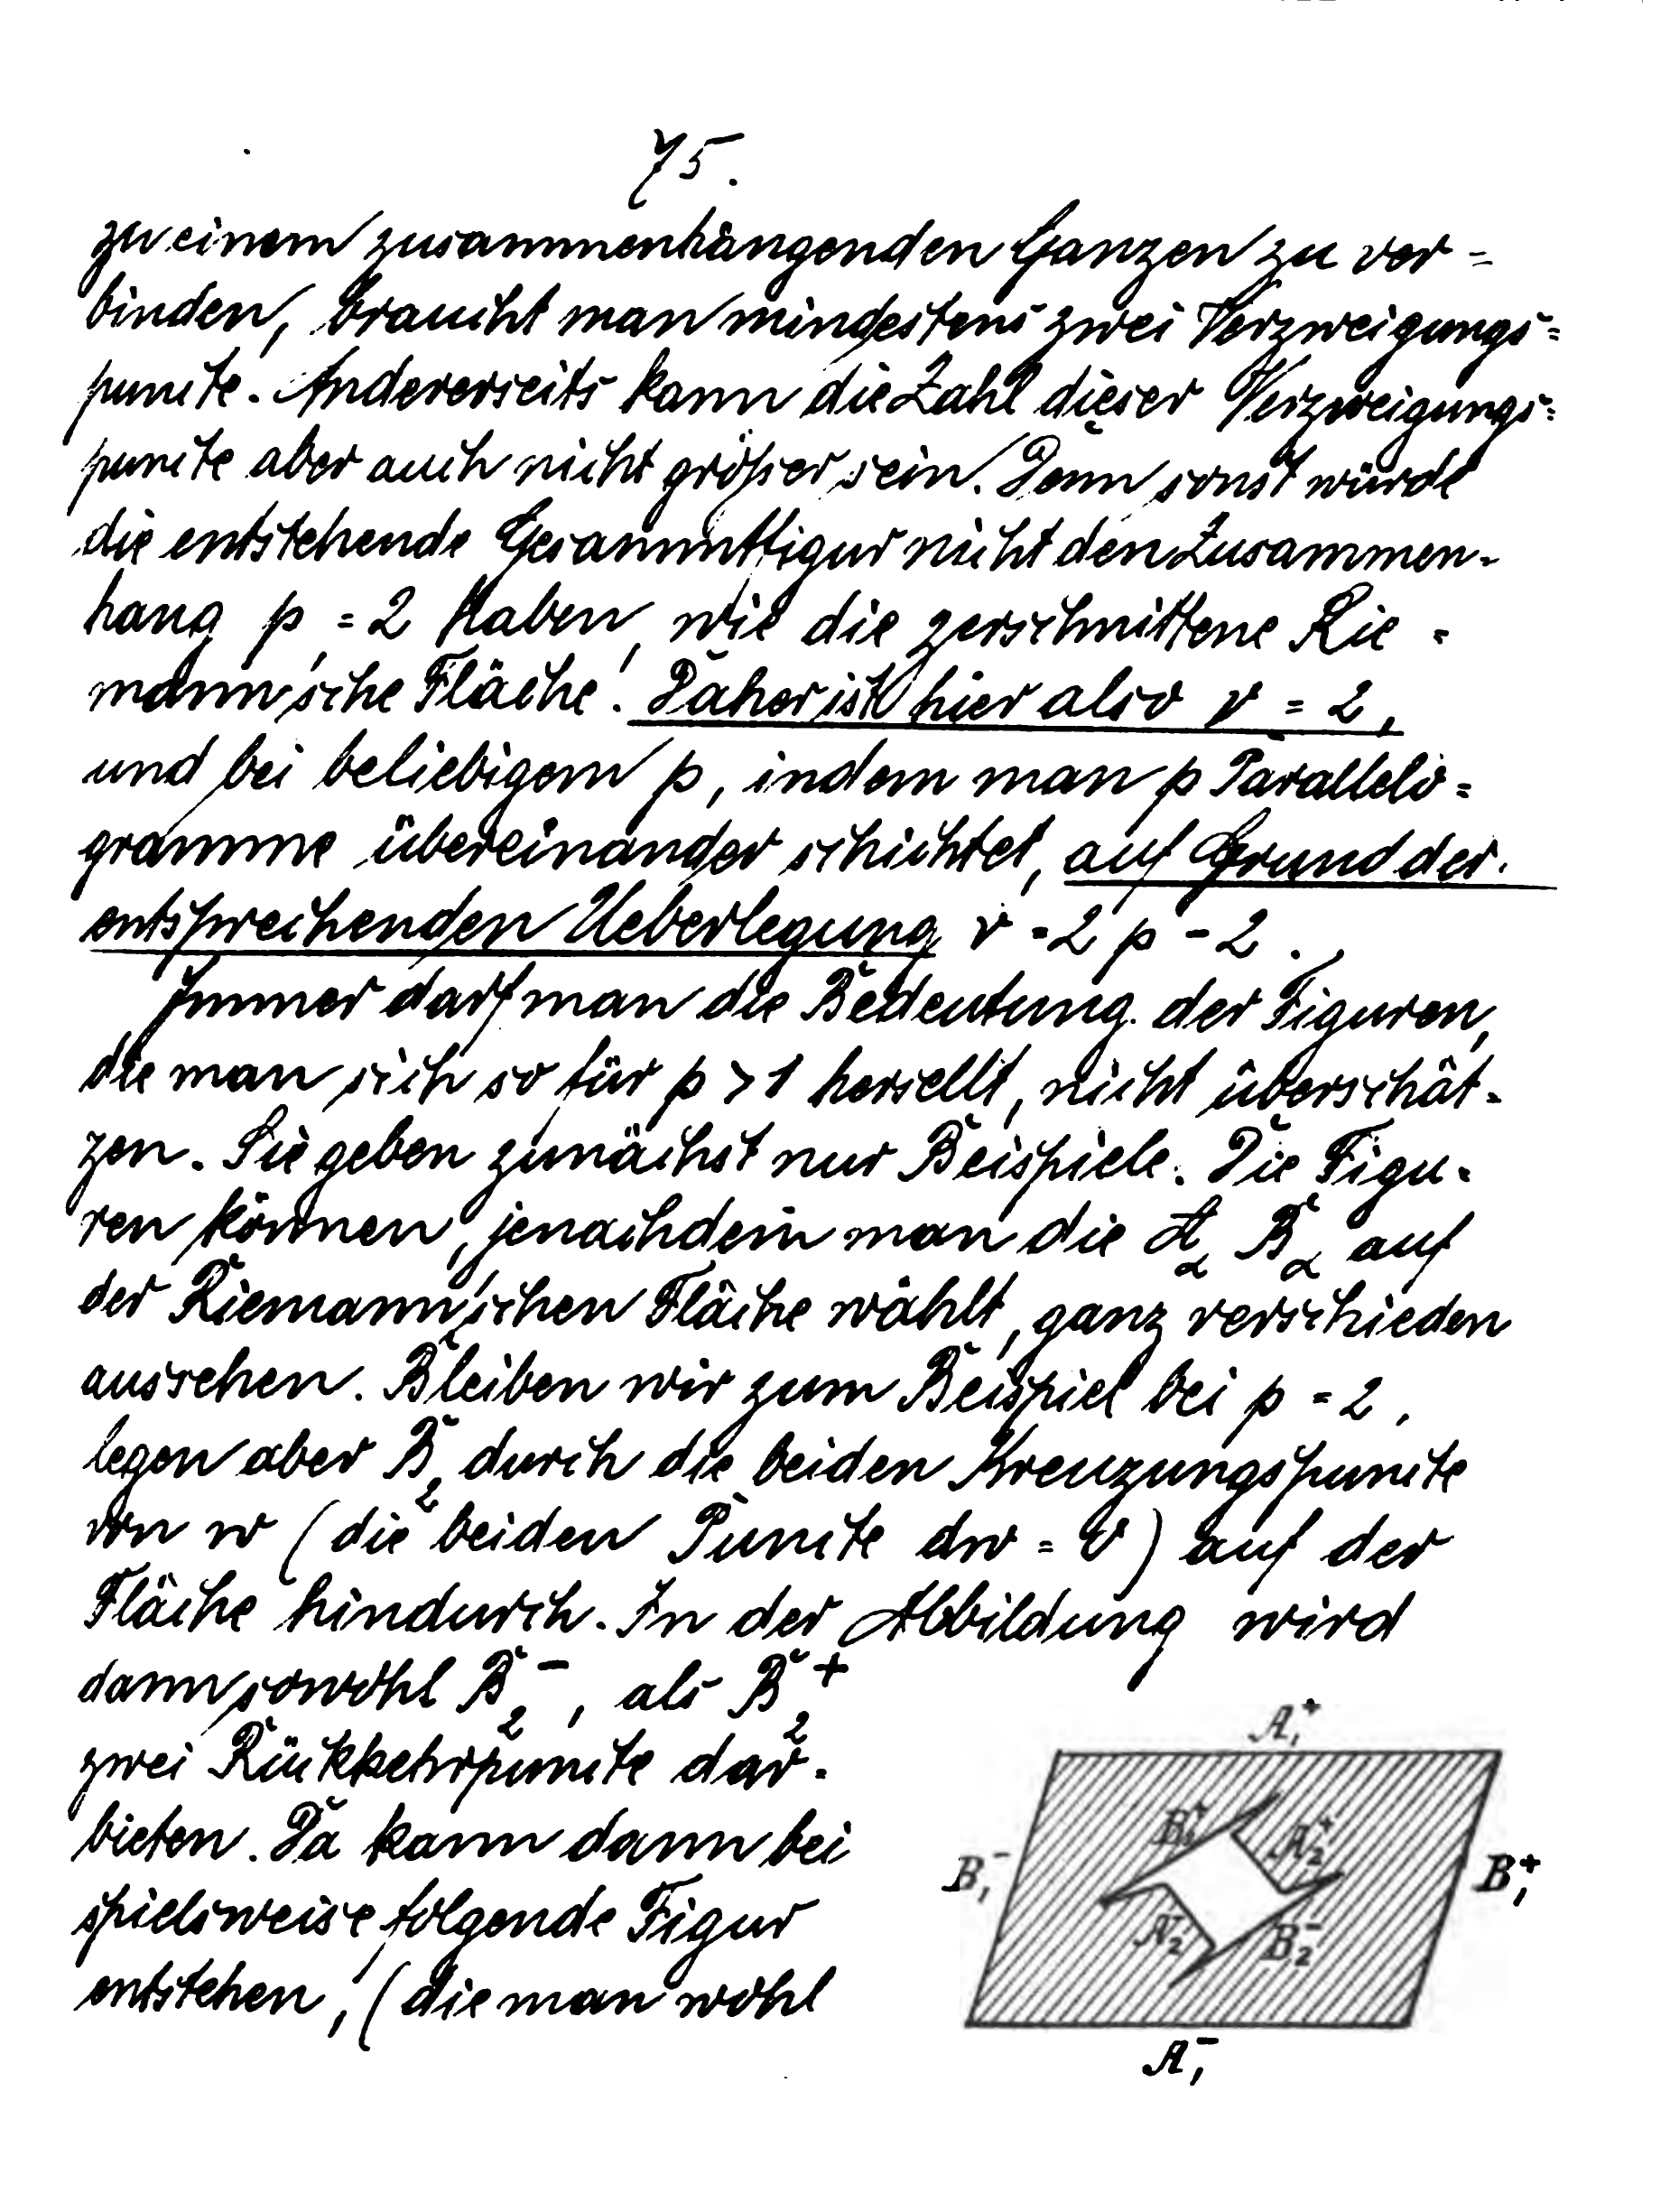 75.
zu einem zusammenhängenden Ganzen zu ver=
binden, braucht man mindestens zwei Verzweigungs=
puncte. Andererseits kann die Zahl dieser Verzweigungs=
puncte aber auch nicht größer sein. Denn sonst würde
die entstehende Gesammtfigur nicht den Zusammen-
hang p = 2 haben, wie die zerschnittene Rie=
mann'sche Fläche. Daher ist hier also ν = 2,
und bei beliebigem p, indem man p Parallelo=
gramme übereinander schichtet, auf Grund der
entsprechenden Ueberlegung ν = 2p - 2.
Immer darf man die Bedeutung der Figuren,
die man sich so für p > 1 hersellt, nicht überschät-
zen. Sie geben zunächst nur Beispiele. Die Figu-
ren können, jenachdem man die A_α B_α auf
der Riemann'schen Fläche wählt, ganz verschieden
aussehen. Bleiben wir zum Beispiel bei p = 2,
legen aber B₂ durch die beiden Kreuzungspuncte
von w (die beiden Puncte dw = 0) auf der
Fläche hindurch. In der Abbildung wird
dann sowohl B₂⁻, als B₂⁺
zwei Rückkehrpuncte dar-
bieten. Da kann dann bei
spielsweise folgende Figur
entstehen, (die man wohl
A₁⁺
A₂⁺
B₁⁻
B₁⁺
A₂⁻
B₂⁻
A₁⁻